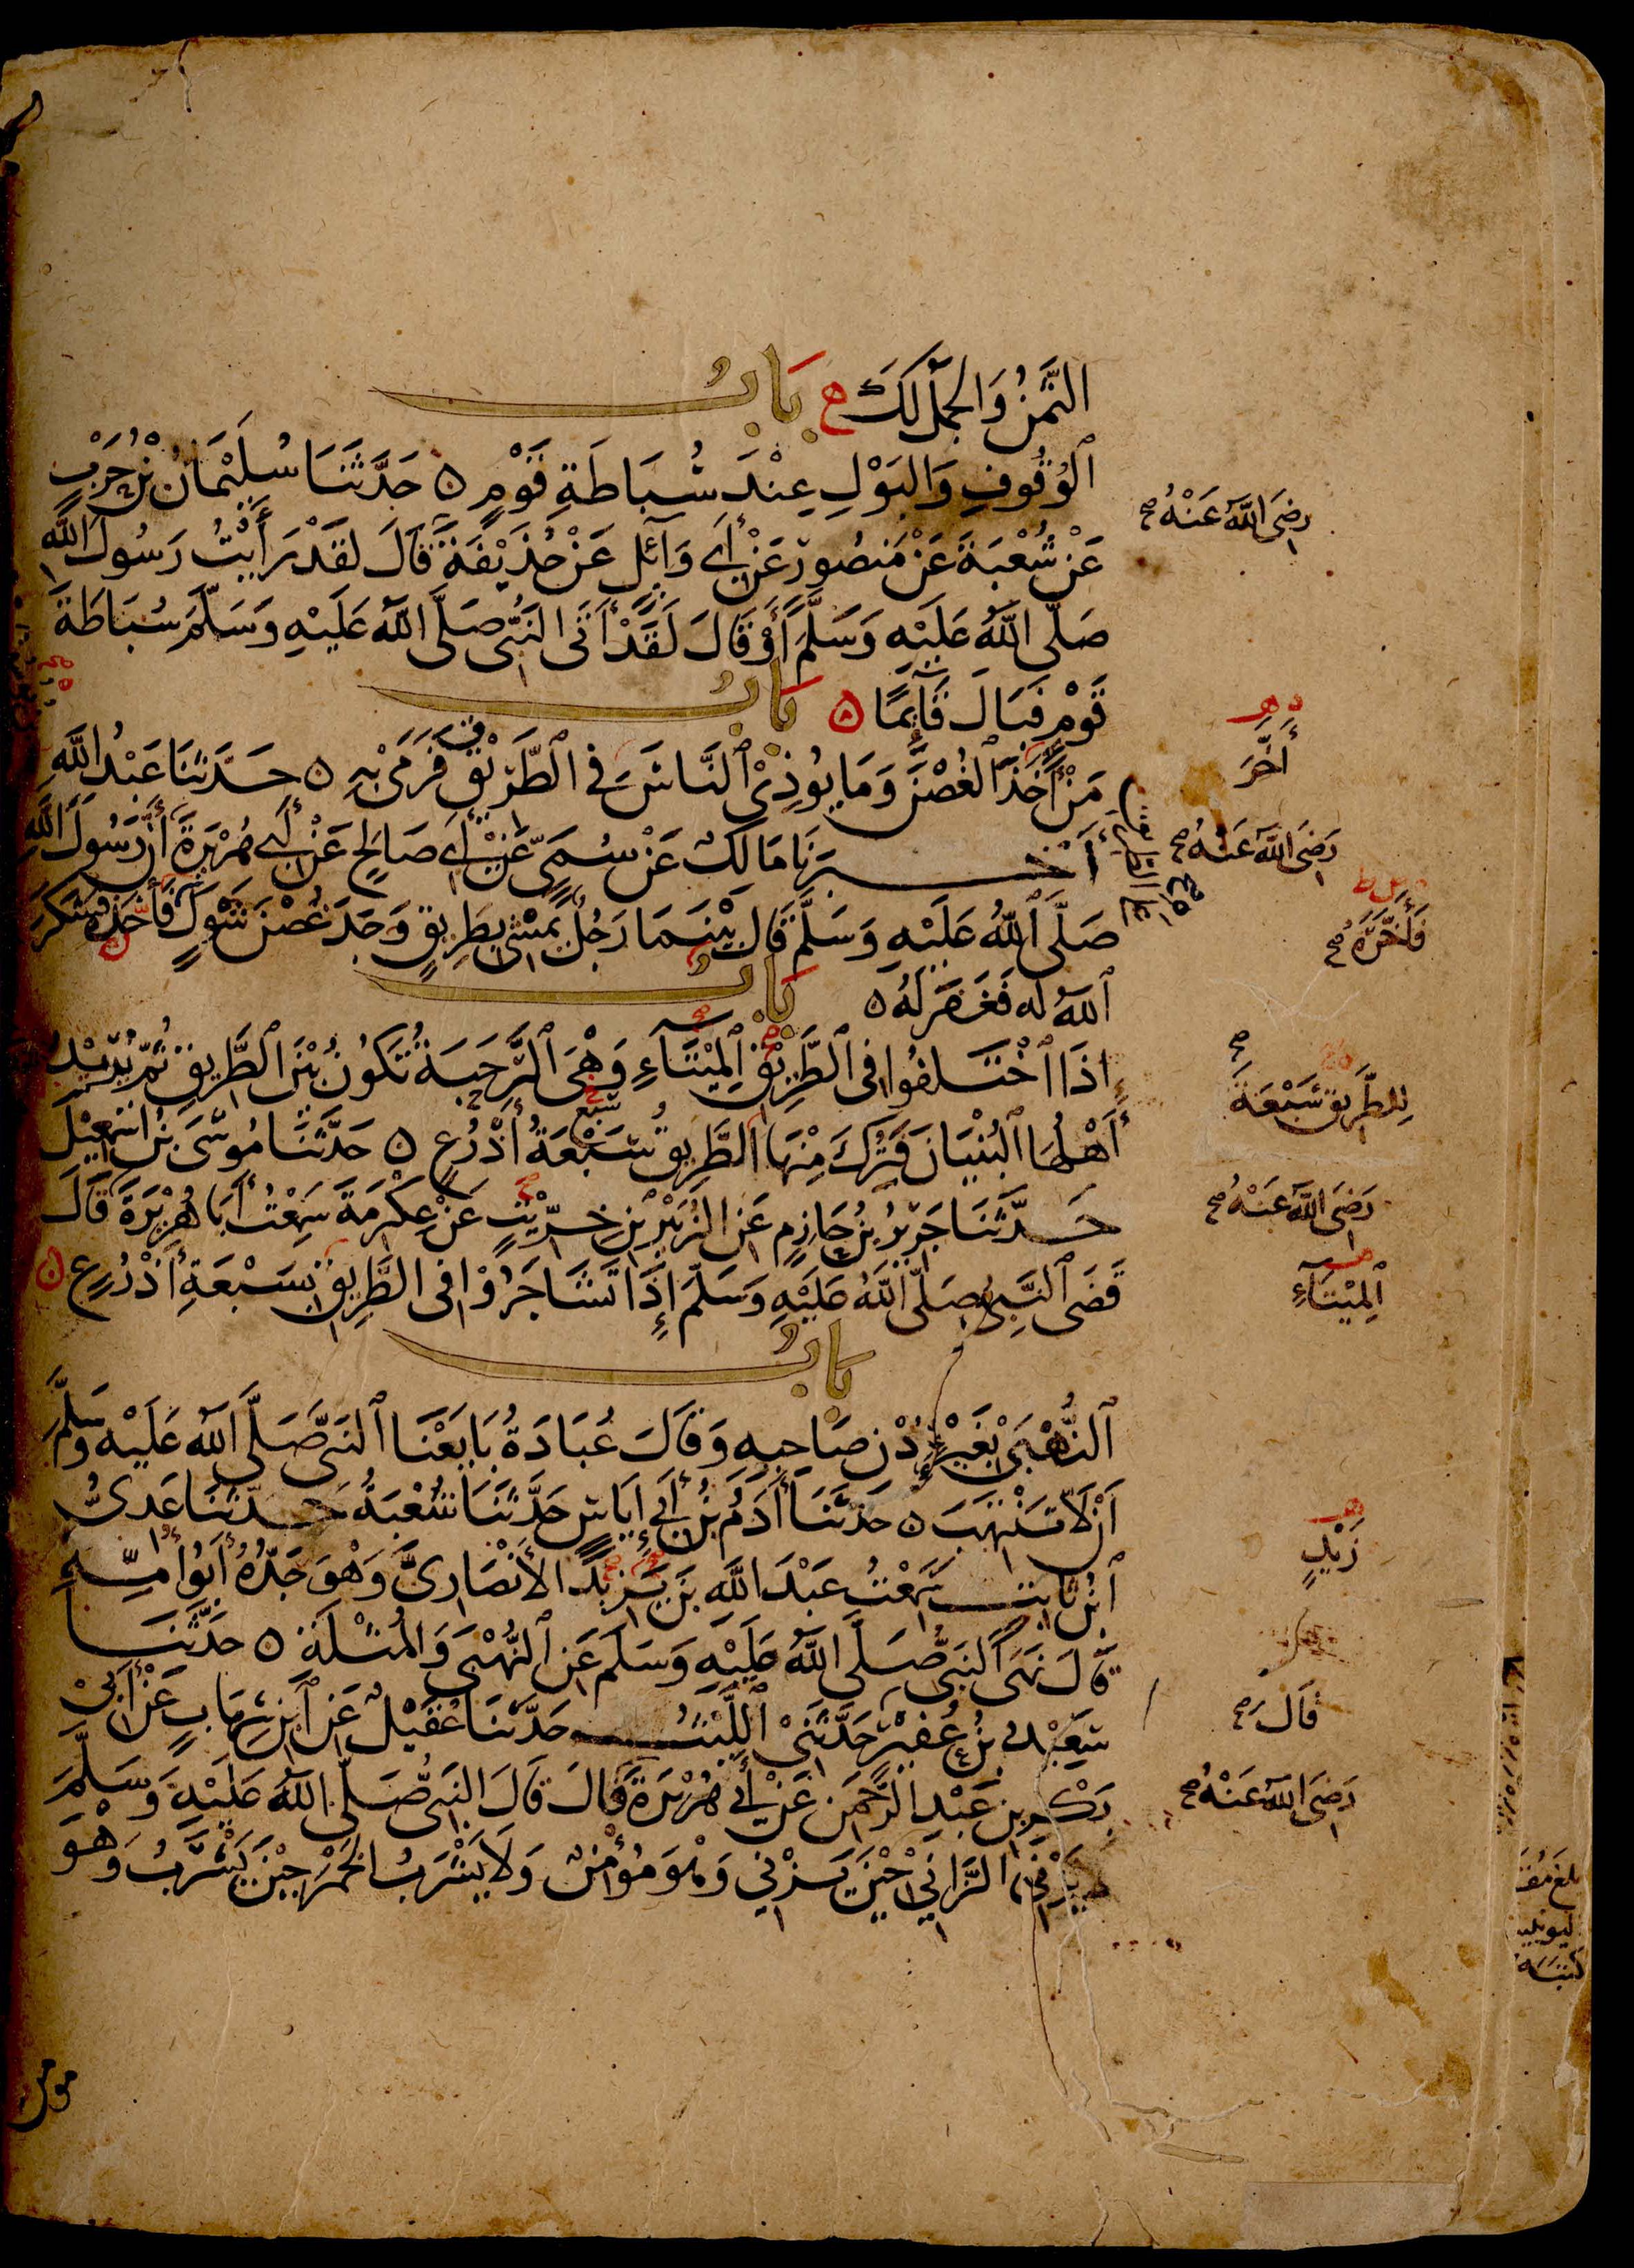 الثَّمَنُ وَالْجَمَلُ لَكَ ه بَابُ
الْوُقُوفِ وَالْبَوْلِ عِنْدَ سُبَاطَةِ قَوْمٍ ه حَدَّثَنَا سُلَيْمَانُ بْنُ حَرْبٍ
عَنْ شُعْبَةَ عَنْ مَنْصُورٍ عَنْ أَبِي وَائِلٍ عَنْ حُذَيْفَةَ قَالَ لَقَدْ رَأَيْتُ رَسُولَ اللهِ
رَضِيَ اللهُ عَنْهُ صح
صَلَّى اللهُ عَلَيْهِ وَسَلَّمَ أَوْ قَالَ لَقَدْ أَتَى النَّبِيُّ صَلَّى اللهُ عَلَيْهِ وَسَلَّمَ سُبَاطَةَ
قَوْمٍ فَبَالَ قَائِمًا ه بَابُ
مَنْ أَخَذَ الْغُصْنَ وَمَا يُؤْذِي النَّاسَ فِي الطَّرِيقِ فَرَمَى بِهِ ه حَدَّثَنَا عَبْدُ اللهِ
أَخَّرَ
أَخْبَرَنَا مَالِكٌ عَنْ سُمَيٍّ عَنْ أَبِي صَالِحٍ عَنْ أَبِي هُرَيْرَةَ أَنَّ رَسُولَ اللهِ
رَضِيَ اللهُ عَنْهُ صح
صَلَّى اللهُ عَلَيْهِ وَسَلَّمَ قَالَ بَيْنَمَا رَجُلٌ يَمْشِي بِطَرِيقٍ وَجَدَ غُصْنَ شَوْكٍ فَأَخَذَهُ فَشَكَرَ
فَأَخَّرَهُ صح
اللهُ لَهُ فَغَفَرَ لَهُ ه بَابُ
إِذَا اخْتَلَفُوا فِي الطَّرِيقِ الْمِيتَاءِ وَهْيَ الرَّحَبَةُ تَكُونُ بَيْنَ الطَّرِيقِ ثُمَّ يُرِيدُ
لِلطَّرِيقِ سَبْعَةَ
أَهْلُهَا الْبُنْيَانَ فَتُرِكَ مِنْهَا الطَّرِيقُ سَبْعَةُ أَذْرُعٍ ه حَدَّثَنَا مُوسَى بْنُ إِسْمَعِيلَ
حَدَّثَنَا جَرِيرُ بْنُ حَازِمٍ عَنِ الزُّبَيْرِ بْنِ خِرِّيتٍ عَنْ عِكْرِمَةَ سَمِعْتُ أَبَا هُرَيْرَةَ قَالَ
رَضِيَ اللهُ عَنْهُ صح
قَضَى النَّبِيُّ صَلَّى اللهُ عَلَيْهِ وَسَلَّمَ إِذَا تَشَاجَرُوا فِي الطَّرِيقِ بِسَبْعَةِ أَذْرُعٍ ه
الْمِيتَاءِ
بَابُ
النُّهْبَى بِغَيْرِ إِذْنِ صَاحِبِهِ وَقَالَ عُبَادَةُ بَايَعْنَا النَّبِيَّ صَلَّى اللهُ عَلَيْهِ وَسَلَّمَ
أَنْ لَا نَنْتَهِبَ ه حَدَّثَنَا آدَمُ بْنُ أَبِي إِيَاسٍ حَدَّثَنَا شُعْبَةُ حَدَّثَنَا عَدِيُّ
ابْنُ ثَابِتٍ سَمِعْتُ عَبْدَ اللهِ بْنَ يَزِيدَ الْأَنْصَارِيَّ وَهْوَ جَدُّهُ أَبُو أُمِّهِ
زَيْدٍ
قَالَ نَهَى النَّبِيُّ صَلَّى اللهُ عَلَيْهِ وَسَلَّمَ عَنِ النُّهْبَى وَالْمُثْلَةِ ه حَدَّثَنَا
سَعِيدُ بْنُ عُفَيْرٍ حَدَّثَنِي اللَّيْثُ حَدَّثَنَا عُقَيْلٌ عَنِ ابْنِ شِهَابٍ عَنْ أَبِي
قَالَ
بَكْرِ بْنِ عَبْدِ الرَّحْمَنِ عَنْ أَبِي هُرَيْرَةَ قَالَ قَالَ النَّبِيُّ صَلَّى اللهُ عَلَيْهِ وَسَلَّمَ
رَضِيَ اللهُ عَنْهُ صح
يَزْنِي الزَّانِي حِينَ يَزْنِي وَهْوَ مُؤْمِنٌ وَلَا يَشْرَبُ الْخَمْرَ حِينَ يَشْرَبُ وَهْوَ
مومن